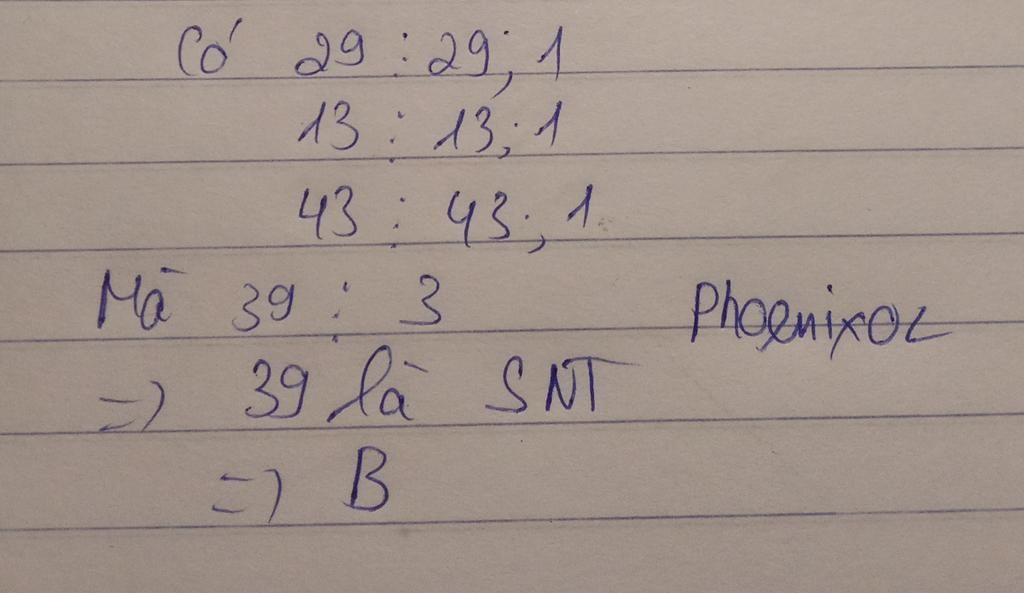 Có 29 ⋮ 29; 1
13 ⋮ 13; 1
43 ⋮ 43; 1
Mà 39 ⋮ 3
Phoenixoz
=) 39 là SNT
=) B